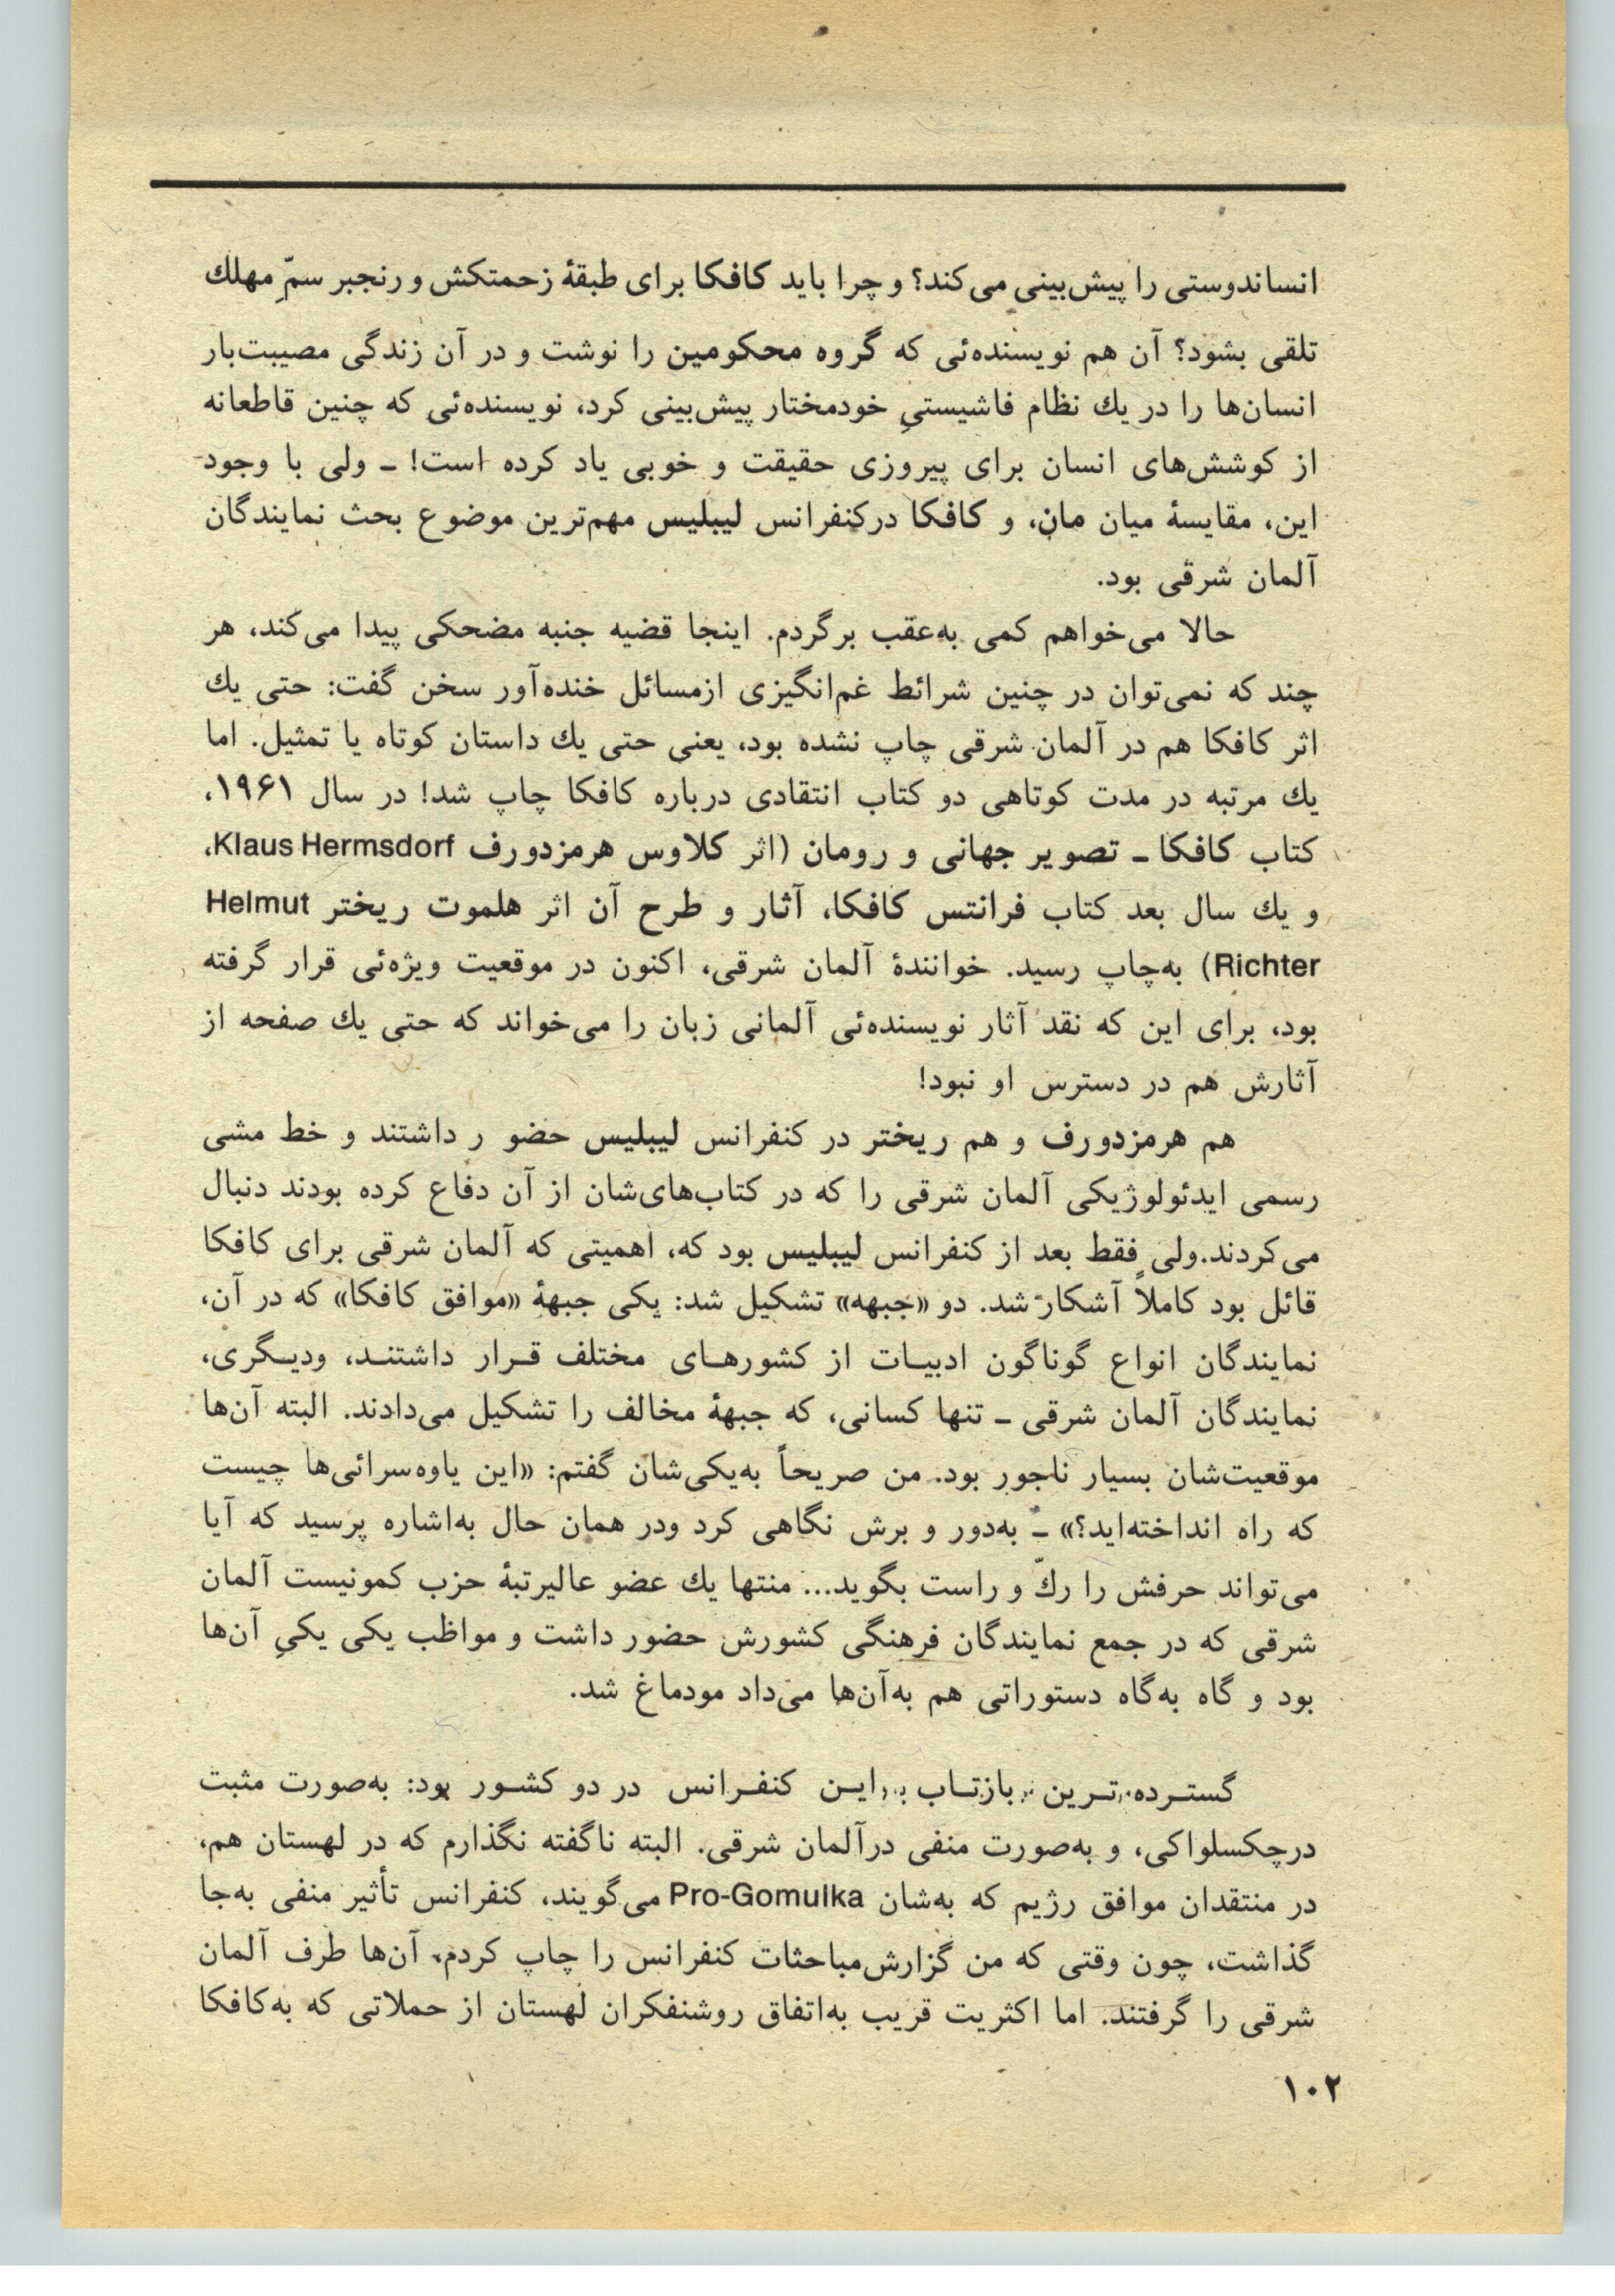 انساندوستی را پیش‌بینی می‌کند؟ و چرا باید کافکا برای طبقهٔ زحمتکش و رنجبر سمّ مهلك
تلقی بشود؟ آن هم نویسنده‌ئی که گروه محکومین را نوشت و در آن زندگی مصیبت‌بار
انسان‌ها را در یك نظام فاشیستیِ خودمختار پیش‌بینی کرد، نویسنده‌ئی که چنین قاطعانه
از کوشش‌های انسان برای پیروزی حقیقت و خوبی یاد کرده است! ـ ولی با وجود
این، مقایسهٔ میان مان، و کافکا درکنفرانس لیبلیس مهم‌ترین موضوع بحث نمایندگان
آلمان شرقی بود.
حالا می‌خواهم کمی به‌عقب برگردم. اینجا قضیه جنبه مضحکی پیدا می‌کند، هر
چند که نمی‌توان در چنین شرائط غم‌انگیزی ازمسائل خنده‌آور سخن گفت: حتی یك
اثر کافکا هم در آلمان شرقی چاپ نشده بود، یعنی حتی یك داستان کوتاه یا تمثیل. اما
یك مرتبه در مدت کوتاهی دو کتاب انتقادی درباره کافکا چاپ شد! در سال ۱۹۶۱،
کتاب کافکا ـ تصویر جهانی و رومان (اثر کلاوس هرمزدورف Klaus Hermsdorf،
و یك سال بعد کتاب فرانتس کافکا، آثار و طرح آن اثر هلموت ریختر Helmut
Richter) به‌چاپ رسید. خوانندهٔ آلمان شرقی، اکنون در موقعیت ویژه‌ئی قرار گرفته
بود، برای این که نقد آثار نویسنده‌ئی آلمانی زبان را می‌خواند که حتی یك صفحه از
آثارش هم در دسترس او نبود!
هم هرمزدورف و هم ریختر در کنفرانس لیبلیس حضو ر داشتند و خط مشی
رسمی ایدئولوژیکی آلمان شرقی را که در کتاب‌های‌شان از آن دفاع کرده بودند دنبال
می‌کردند.ولی فقط بعد از کنفرانس لیبلیس بود که، اهمیتی که آلمان شرقی برای کافکا
قائل بود کاملاً آشکار شد. دو «جبهه» تشکیل شد: یکی جبههٔ «موافق کافکا» که در آن،
نمایندگان انواع گوناگون ادبیـات از کشورهـای مختلف قـرار داشتنـد، ودیـگری،
نمایندگان آلمان شرقی ـ تنها کسانی، که جبههٔ مخالف را تشکیل می‌دادند. البته آن‌ها
موقعیت‌شان بسیار ناجور بود. من صریحاً به‌یکی‌شان گفتم: «این یاوه‌سرائی‌ها چیست
که راه انداخته‌اید؟» ـ به‌دور و برش نگاهی کرد ودر همان حال به‌اشاره پرسید که آیا
می‌تواند حرفش را ركّ و راست بگوید... منتها یك عضو عالیرتبهٔ حزب کمونیست آلمان
شرقی که در جمع نمایندگان فرهنگی کشورش حضور داشت و مواظب یکی یکیِ آن‌ها
بود و گاه به‌گاه دستوراتی هم به‌آن‌ها می‌داد مودماغ شد.
گستـرده‌تـرین بازتـاب ایـن کنفـرانس در دو کشـور بود: به‌صورت مثبت
درچکسلواکی، و به‌صورت منفی درآلمان شرقی. البته ناگفته نگذارم که در لهستان هم،
در منتقدان موافق رژیم که به‌شان Pro-Gomulka می‌گویند، کنفرانس تأثیر منفی به‌جا
گذاشت، چون وقتی که من گزارش‌مباحثات کنفرانس را چاپ کردم، آن‌ها طرف آلمان
شرقی را گرفتند. اما اکثریت قریب به‌اتفاق روشنفکران لهستان از حملاتی که به‌کافکا
۱۰۲